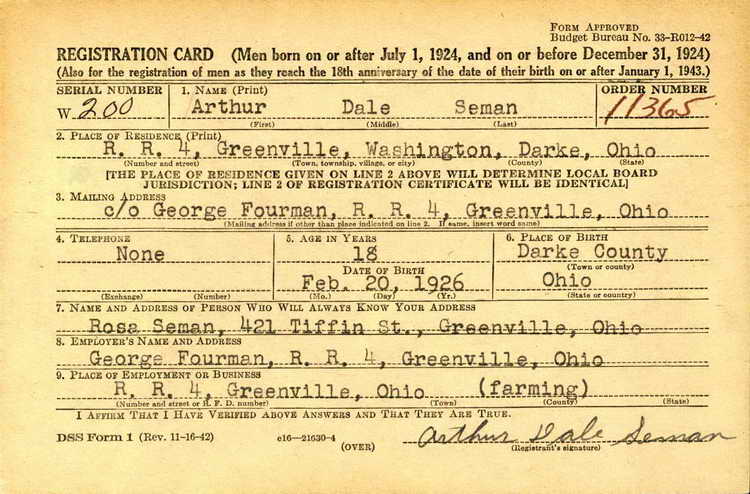 FORM APPROVED
Budget Bureau No. 33-R012-42
REGISTRATION CARD (Men born on or after July 1, 1924, and on or before December 31, 1924)
(Also for the registration of men as they reach the 18th anniversary of the date of their birth on or after January 1, 1943.)
SERIAL NUMBER 1. NAME (Print) ORDER NUMBER
W 200 Arthur Dale Seman 11365
(First) (Middle) (Last)
2. PLACE OF RESIDENCE (Print)
R. R. 4, Greenville, Washington, Darke, Ohio
(Number and street) (Town, township, village, or city) (County) (State)
[THE PLACE OF RESIDENCE GIVEN ON LINE 2 ABOVE WILL DETERMINE LOCAL BOARD
JURISDICTION; LINE 2 OF REGISTRATION CERTIFICATE WILL BE IDENTICAL]
3. MAILING ADDRESS
c/o George Fourman, R. R. 4, Greenville, Ohio
(Mailing address if other than place indicated on line 2. If same, insert word same)
4. TELEPHONE 5. AGE IN YEARS 6. PLACE OF BIRTH
None 18 Darke County
(Town or county)
DATE OF BIRTH
Feb. 20, 1926 Ohio
(Exchange) (Number) (Mo.) (Day) (Yr.) (State or country)
7. NAME AND ADDRESS OF PERSON WHO WILL ALWAYS KNOW YOUR ADDRESS
Rosa Seman, 421 Tiffin St., Greenville, Ohio
8. EMPLOYER'S NAME AND ADDRESS
George Fourman, R. R. 4, Greenville, Ohio
9. PLACE OF EMPLOYMENT OR BUSINESS
R. R. 4, Greenville, Ohio (farming)
(Number and street or R. F. D. number) (Town) (County) (State)
I AFFIRM THAT I HAVE VERIFIED ABOVE ANSWERS AND THAT THEY ARE TRUE.
DSS Form 1 (Rev. 11-16-42) c16—21630-4 Arthur Dale Seman
(OVER) (Registrant's signature)